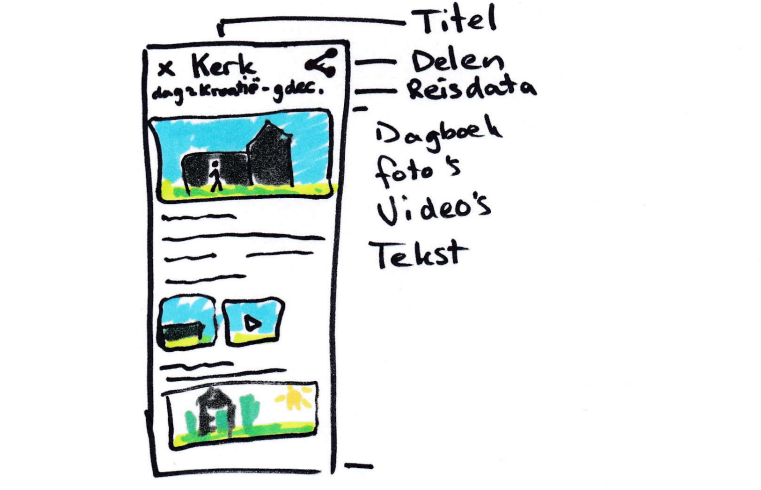 Titel
x Kerk
Delen
dag 2 Kroatië - 9 dec.
Reisdata
Dagboek
foto's
Video's
Tekst